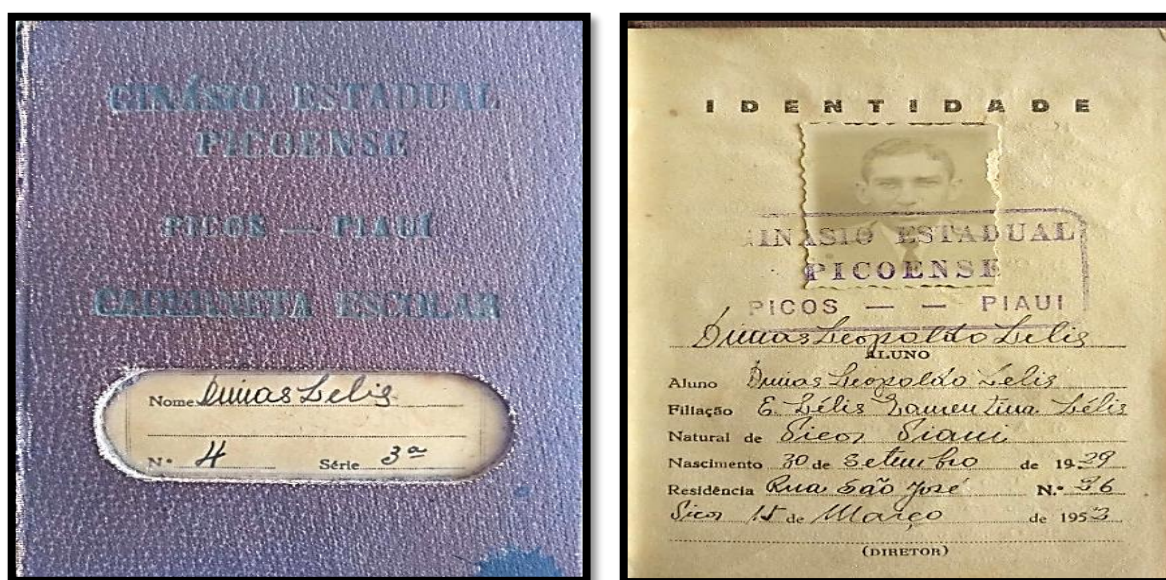 GINÁSIO ESTADUAL
PICOENSE
PICOS — PIAUÍ
CADERNETA ESCOLAR
Nome Dimas Lelis
N.º 4 Série 3ª
IDENTIDADE
GINASIO ESTADUAL
PICOENSE
PICOS — — PIAUI
Dimas Leopoldo Lelis
ALUNO
Aluno Dimas Leopoldo Lelis
Filiação E. Lélis Lélis
Natural de Picos Piaui
Nascimento 30 de Setembro de 1939
Residência Rua São José N.º 36
Picos 15 de Março de 1953
(DIRETOR)